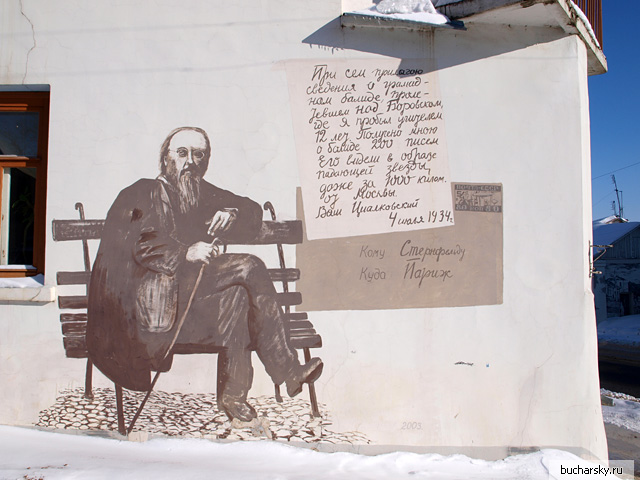 При сем прилагаю
сведения о громад-
ном балиде, проле-
тевшем над Боровском,
где я пробыл учителем
12 лет. Получено мною
о балиде 200 писем
Его видели в образе
падающей звезды,
даже за 1000 килом.
от Москвы.
Ваш Циалковский
4 июля 1934г.
Кому Стернфельду
Куда Париж
2003
bucharsky.ru